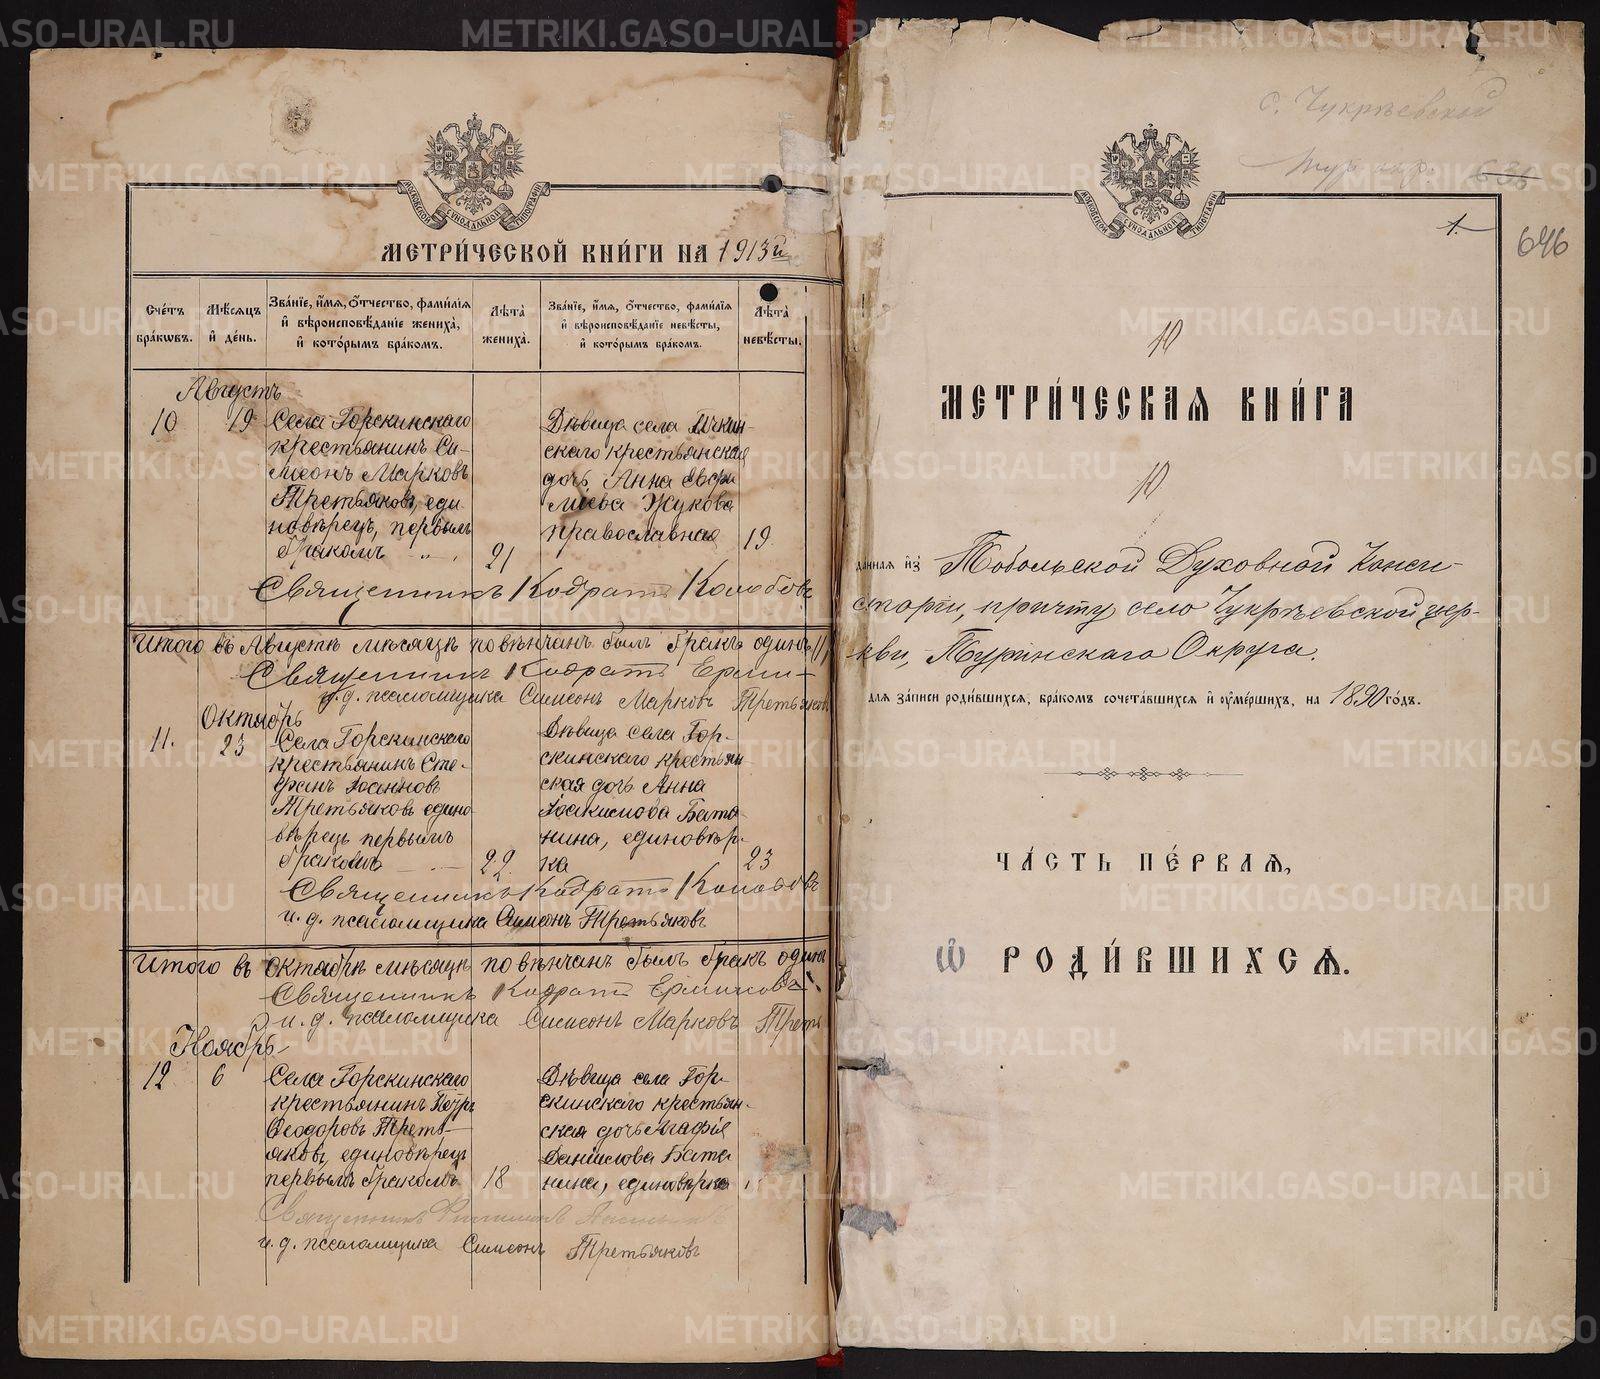 МЕТРИ́ЧЕСКОЙ КНИ́ГИ НА 1913й
Сче́тъ бра́кѡвъ.
Мѣ́сяцъ и҆ де́нь.
Зва́нїе, и҆́мѧ, ѻ҆́тчество, фами́лїѧ и҆ вѣроисповѣ́данїе жениха̀, и҆ кото́рымъ бра́комъ.
Лѣ́та жениха̀.
Зва́нїе, и҆́мѧ, ѻ҆́тчество, фами́лїѧ и҆ вѣроисповѣ́данїе невѣ́сты, и҆ кото́рымъ бра́комъ.
Лѣ́та невѣ́сты.
Августъ
10 19 Села Горскинскаго
крестьянинъ Си-
меонъ Марковъ
Третьяковъ, еди
новѣрецъ, первымъ
бракомъ 21
Дѣвица села
скаго крестьянская
дочь Анна Евфи
миева Жукова
православная 19
Священникъ Кодратъ Колобовъ
Итого въ Августѣ мѣсяцѣ повѣнчанъ былъ бракъ одинъ /1/
Священникъ Кодратъ
и. д. псаломщика Симеонъ Марковъ Третьяковъ
Октябрь
11. 23 Села Горскинскаго
крестьянинъ Сте-
фанъ Іоанновъ
Третьяковъ едино
вѣрецъ первымъ
бракомъ 22.
Дѣвица села Гор-
скинскаго крестьян
ская дочь Анна
Іоакимова Бата
нина, единовѣр-
ка 23
Священникъ Кодратъ Колобовъ
и. д. псаломщика Симеонъ Третьяковъ
Итого въ октябрѣ мѣсяцѣ повѣнчанъ былъ бракъ одинъ
Священникъ Кодратъ
и. д. псаломщика Симеонъ Марковъ Треть
Ноябрь
12 6 Села Горскинскаго
крестьянинъ Петръ
Ѳеодоровъ Треть-
яковъ, единовѣрецъ
первымъ бракомъ 18
Дѣвица села Гор-
скинскаго крестьян-
ская дочь Агафія
Даніилова Бата
нина, единовѣрка
Священникъ
и. д. псаломщика Симеонъ Третьяковъ
с. Чукреевской
Тур. окр. 636
1.
646
10
МЕТРИ́ЧЕСКАѦ КНИ́ГА
10
да́ннаѧ и҆з̾ Тобольской Духовной Конси-
сторіи, причту село Чукреевской цер-
кви, Туринскаго Округа.
длѧ за́писи роди́вшихсѧ, бра́комъ сочета́вшихсѧ и҆ ѹ҆ме́ршихъ, на 1890 го́дъ.
ЧА́СТЬ ПЕ́РВАѦ,
Ѡ҆ РОДИ́ВШИХСѦ.
METRIKI.GASO-URAL.RU